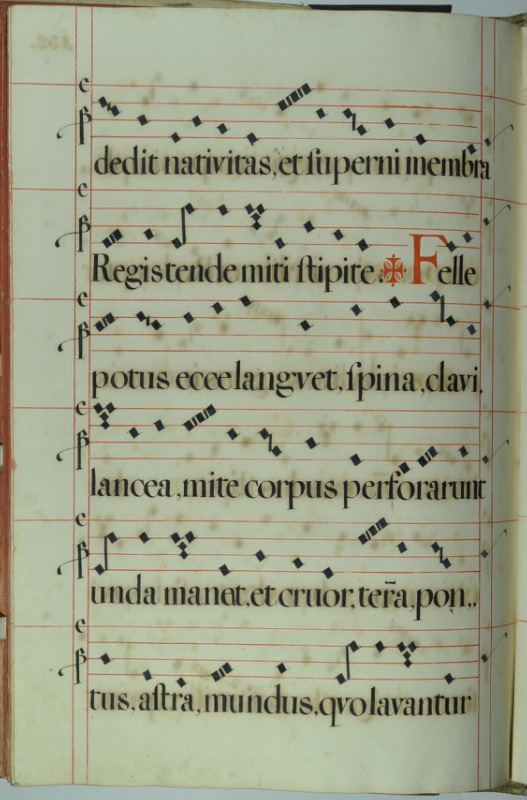 dedit nativitas, et ſuperni membra
Regis tende miti ſtipite. Felle
potus ecce langvet, ſpina, clavi,
lancea, mite corpus perforarunt
unda manat, et cruor, ter̃a, pon,,
tus, aſtra, mundus, qvo lavantur